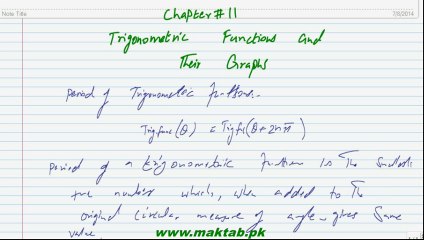 Note Title
7/8/2014
Chapter # 11
Trigonometric Functions and
Their Graphs
Period of Trigonometric functions.
Trig func (θ) = Trig fn (θ + 2nπ)
period of a trigonometric function is The smallest
+ve number which, when added to The
original circular measure of angle, gives same
value
www.maktab.pk